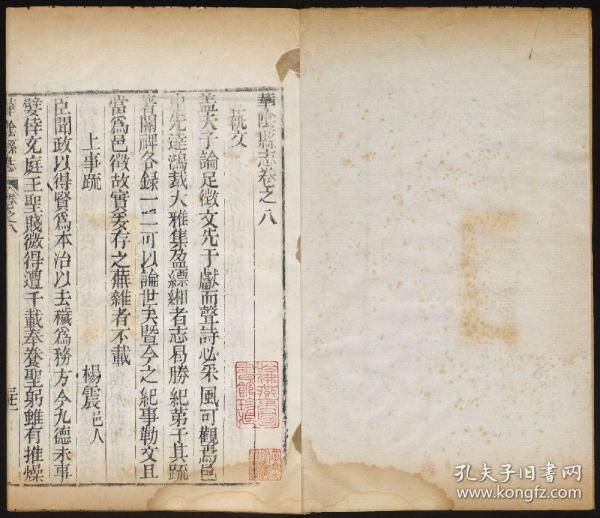 華陰縣志卷之八
藝文
蓋夫子論足徵文先于獻而聲詩必采風可觀焉邑
先達鴻裁大雅集盈縹緗者志曷勝紀第于其疏
著關禆各錄一二可以論世矣暨今之紀事勒文且
當為邑徵故實爰存之蕪雜者不載
上事疏 楊震邑人
臣聞政以得賢為本治以去穢為務方今九德未事
嬖倖充庭王聖賤微得遭千載奉養聖躬雖有推燥
華陰縣志 卷之八
孔夫子旧书网
www.kongfz.com